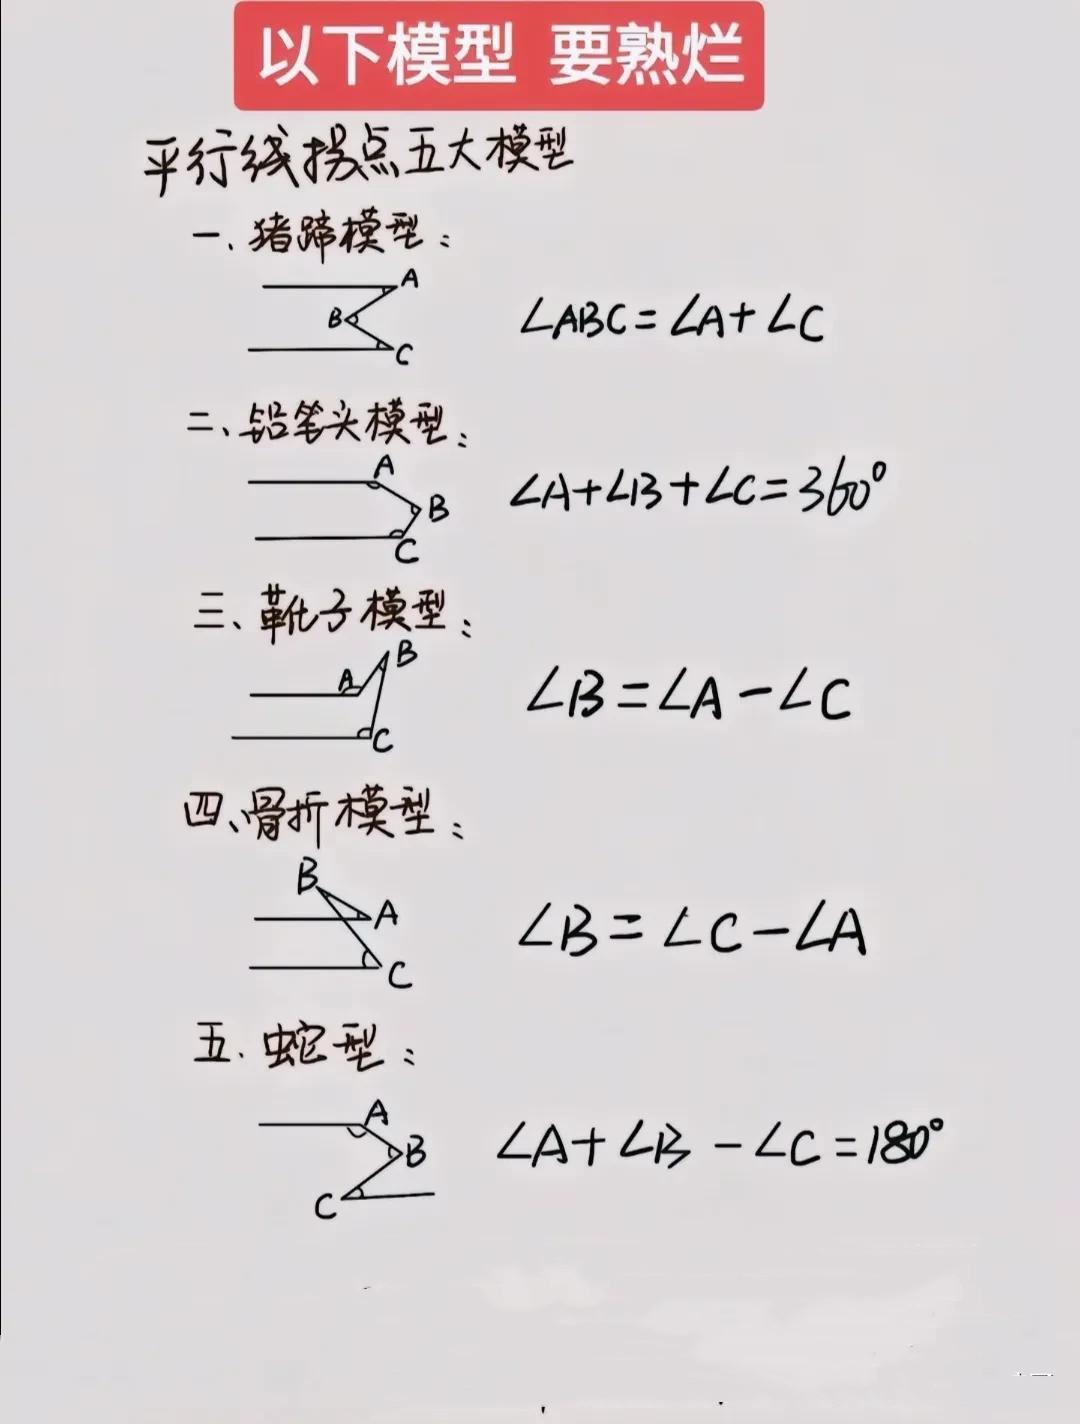 以下模型 要熟烂
平行线拐点五大模型
一、猪蹄模型：
A
B
C
∠ABC=∠A+∠C
二、铅笔头模型：
A
B
C
∠A+∠B+∠C=360°
三、靴子模型：
B
A
C
∠B=∠A-∠C
四、骨折模型：
B
A
C
∠B=∠C-∠A
五.蛇型：
A
B
C
∠A+∠B-∠C=180°